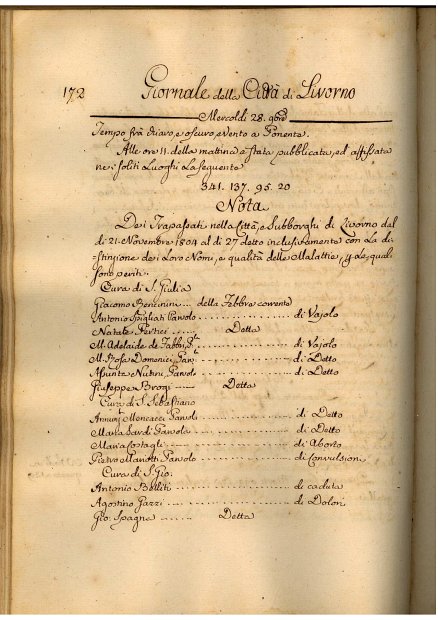 172 Giornale della Città di Livorno
Mercoldi 28. 9bre
Tempo frà chiaro, e oscuro, e vento a Ponente.
Alle ore 11. della mattina è stata pubblicata, ed affissata
nei soliti Luoghi La seguente
341. 137. 95. 20
Nota
Dei Trapassati nella Città, e Subborghi di Livorno dal
di 21. Novembre 1804 al di 27 detto inclusivamente con La di-
stinzione dei Loro Nomi, e qualità delle Malattie, p. Le quali
sono periti.
Cura di S. Giulia
Giacomo Bencinini ... della Febbre corrente
Antonio Spigliati Parvolo ... di Vajolo
Natale Pertici ... Detta
M. Adelaide de Fabbri, Pla ... di Vajolo
M. Rosa Domenici, Parv. ... di Detto
Assunta Nutini, Parvola ... di Detto
Giuseppe Brogi ... Detta
Cura di S. Sebastiano
Menicacci Parvol. ... di Detto
Maria Sardi Parvola ... di Detto
Maria Costagli ... di Aborto
Pietro Mariotti Parvolo ... di Convulsioni
Cura di S. Gio.
Antonio Belliti ... di caduta
Agostino Gazzi ... di Dolori
Gio. Spagna ... Detta